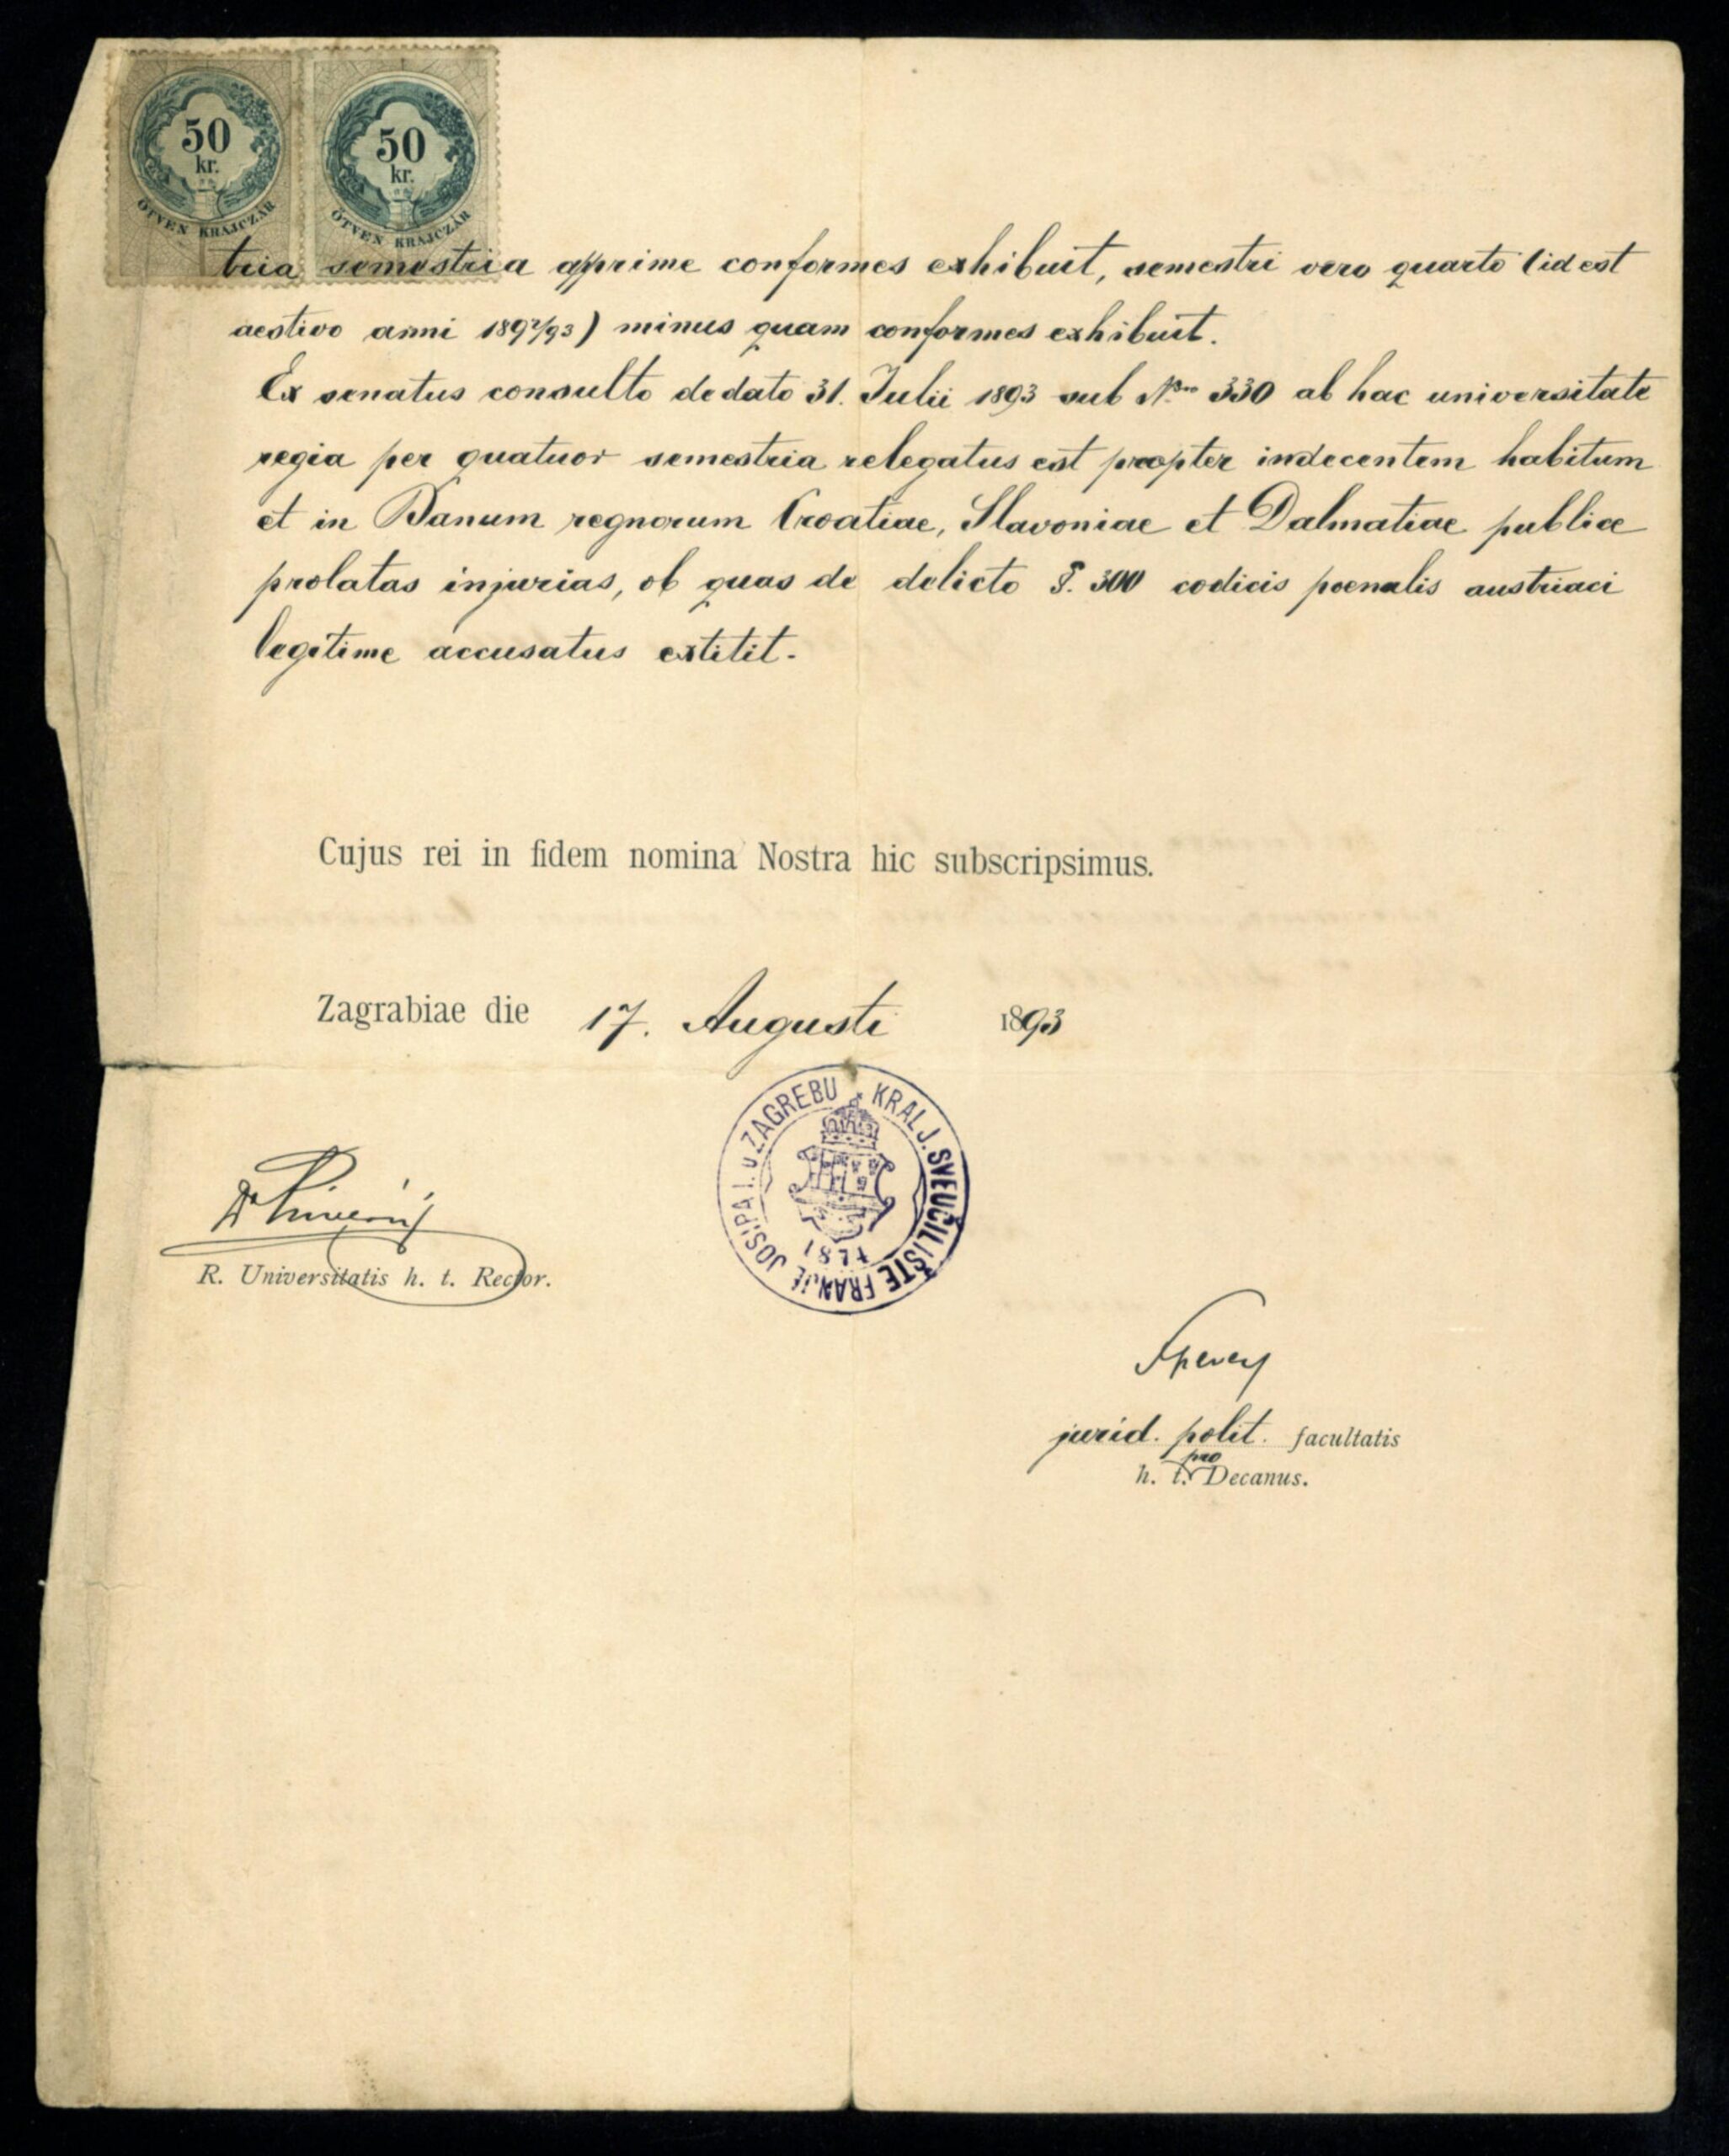 50
kr.
ÖTVEN KRAJCZÁR
50
kr.
ÖTVEN KRAJCZÁR
tria semestria apprime conformes exhibuit, semestri vero quarto (id est
aestivo anni 1892/93) minus quam conformes exhibuit.
Ex senatus consulto de dato 31. Julii 1893 sub Nro 330 ab hac universitate
regia per quatuor semestria relegatus est propter indecentem habitum
et in Banum regnorum Croatiae, Slavoniae et Dalmatiae publice
prolatas injurias, ob quas de delicto §. 300 codicis poenalis austriaci
legitime accusatus extitit.
Cujus rei in fidem nomina Nostra hic subscripsimus.
Zagrabiae die 17. Augusti 1893
KRALJ. SVEUČILIŠTE FRANJE JOSIPA I. U ZAGREBU
1874
Dr
R. Universitatis h. t. Rector.
jurid. polit. facultatis
pro
h. t. Decanus.